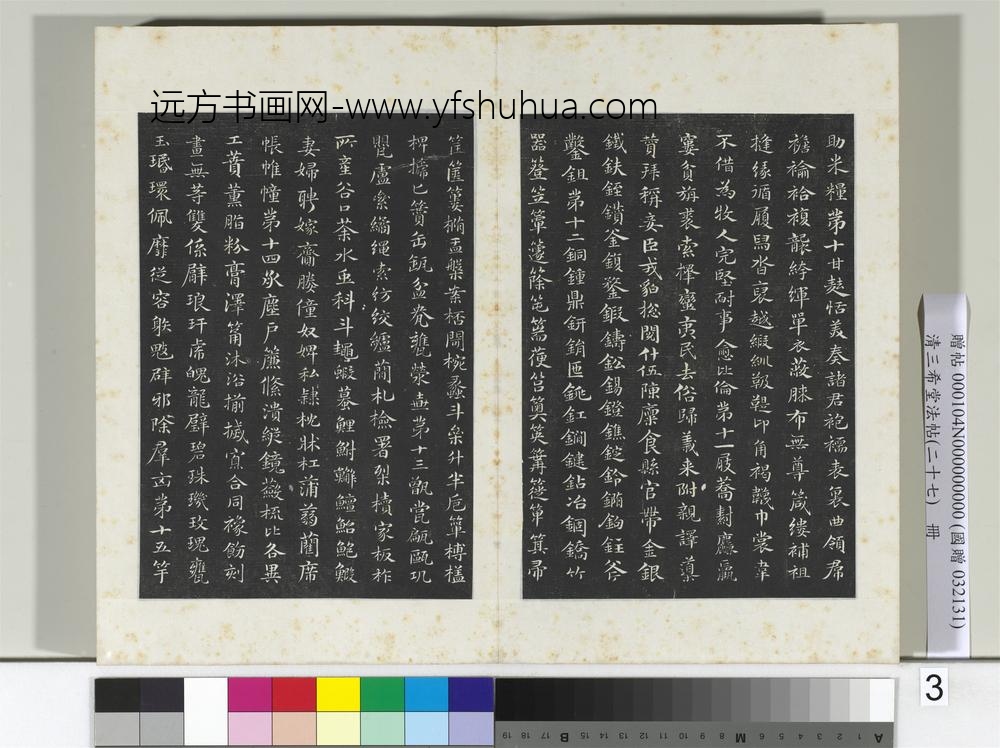 远方书画网-www.yfshuhua.com
助米糧第十甘麮恬美奏諸君袍襦表裏曲領帬
襜褕袷複褻絝緷單衣蔽膝布無尊箴縷補袒
摓緣循履舄沓裒越緞紃靸鞮卬角褐韤巾裳韋
不借為牧人完堅耐事愈比倫第十一屐蹻麤羸
窶貧旃裘索擇蠻夷民去俗歸義來附親譯導
贊拜稱妾臣戎貊總閱什伍陳廩食縣官帶金銀
鐵鈇銍鑽釜鍑鍪鍛鑄鉛錫鐙鐎錠鈴鉤斧
鑿鉏第十二銅鍾鼎鈃鋗匜銚釭鐧鍵鉆冶錮鐈竹
器簦笠簟籧篨笆篅筥篝簁箄箕帚
筐篋簍橢盂槃案桮閜椀蠡斗參升半卮箄榑榼
椑榹匕籫缶缻盆甕罃壺第十三甑甂甌瓨
甖盧絫繘繩索紡絞纑蕳札檢署槧櫝家板柞
所產谷口茶水虫科斗蠅蝦蟇鯉鮒鱣鮐鮑鰕
妻婦聘嫁齎媵僮奴婢私隸枕牀杠蒲蒻藺席
帳帷幢第十四承塵戶簾絛潰縱鏡蘞梳比各異
工蕡薰脂粉膏澤筩沐浴揃搣寡合同豫飭刻
畫無等雙係臂琅玕虎魄龍璧碧珠璣玫瑰甕
玉珉環佩靡從容射魃辟邪除羣凶第十五竽
贈帖 000104N000000000 (國贈 032131)
清三希堂法帖(二十七) 冊
3
A 1 2 3 4 5 6 M 8 9 10 11 12 13 14 15 B 17 18 19